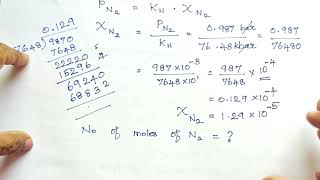 P_N2 = K_H . X_N2
X_N2 = P_N2 / K_H = 0.987 bar / 76.48 kbar = 0.987 / 76480
= 987 × 10^-3 / 7648 × 10^1 = 987 / 7648 × 10^-4
= 0.129 × 10^-4
X_N2 = 1.29 × 10^-5
No of moles of N2 = ?
0.129
7648) 9870
7648
22220
15296
69240
68832